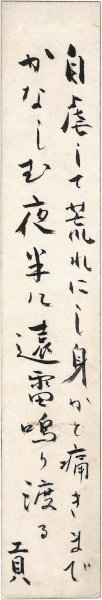 自虐して荒れにし身かと痛きまで
かなしむ夜半に遠雷鳴り渡る
貢